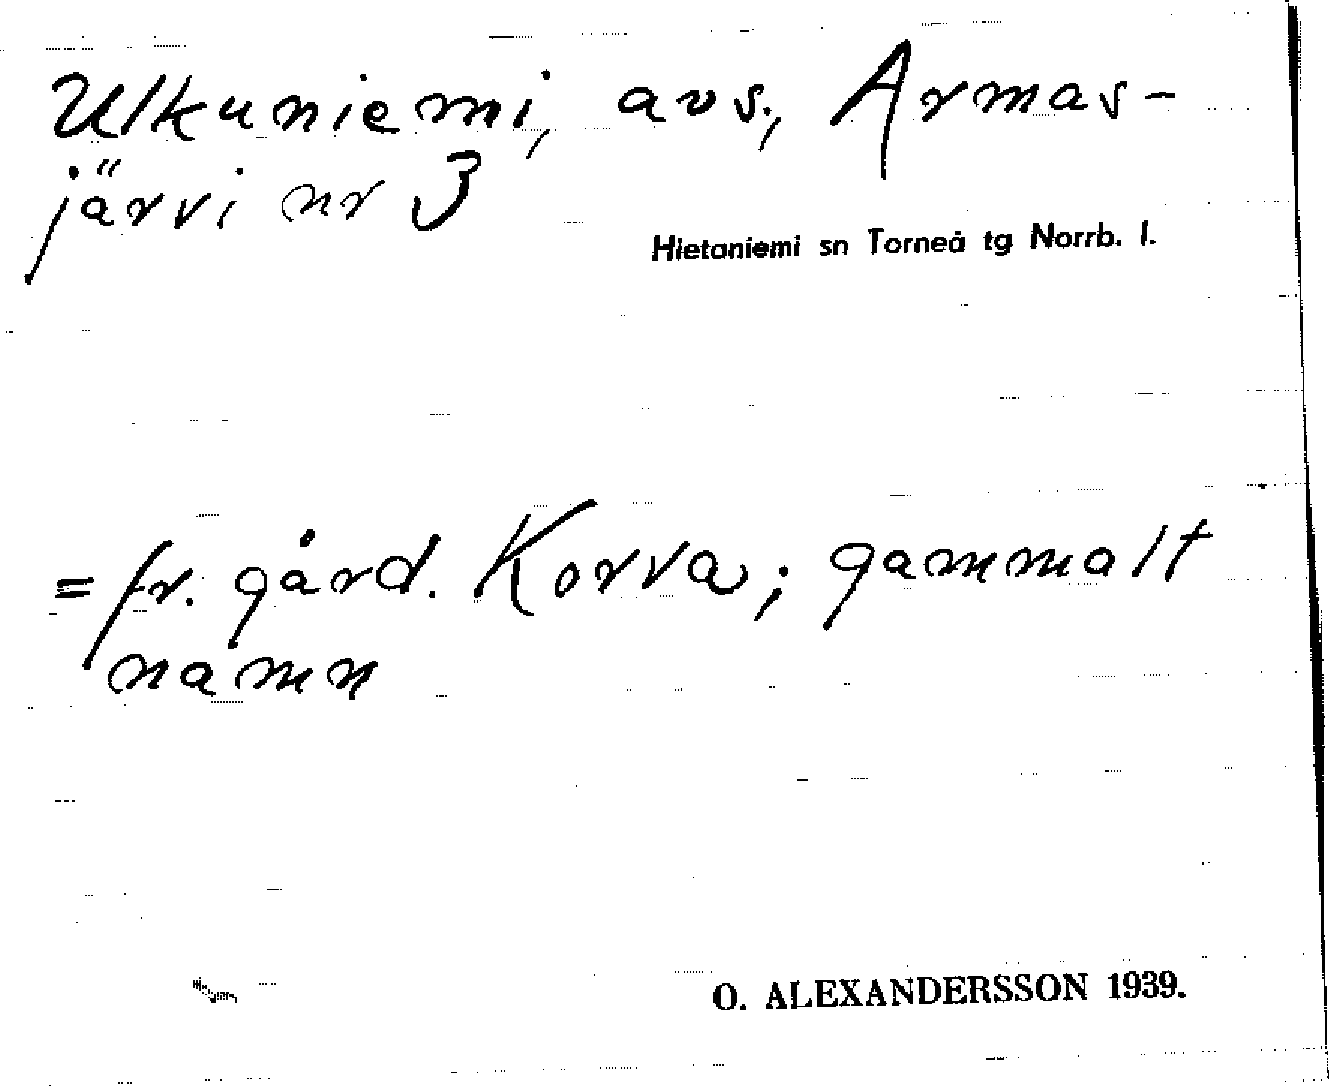 Ulkuniemi, avs., Armas-
järvi nr 3
Hietaniemi sn Torneå tg Norrb. l.
= fr. gård. Korva; gammalt
namn
O. ALEXANDERSSON 1939.